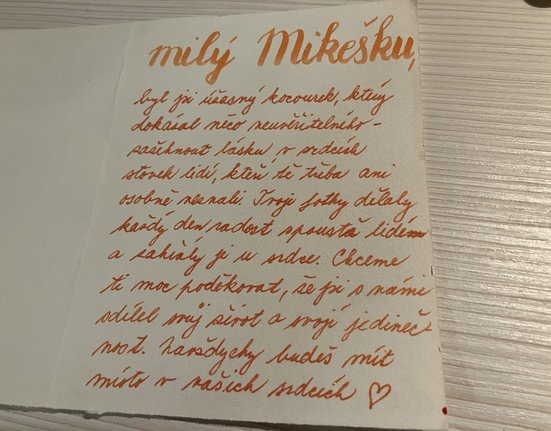 milý Mikešku,
byl jsi úžasný kocourek, který
dokázal něco neuvěřitelného -
zažehnout lásku v srdcích
stovek lidí, kteří tě třeba ani
osobně neznali. Tvoje fotky dělaly
každý den radost spoustě lidem
a zahřály je u srdce. Chceme
ti moc poděkovat, že jsi s námi
sdílel svůj život a svojí jedineč-
nost. Navždycky budeš mít
místo v našich srdcích ♡